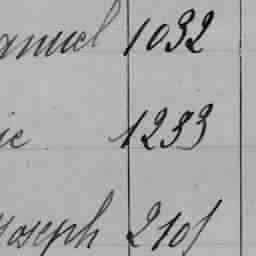 anuel 1032
ie 1233
Joseph 2105